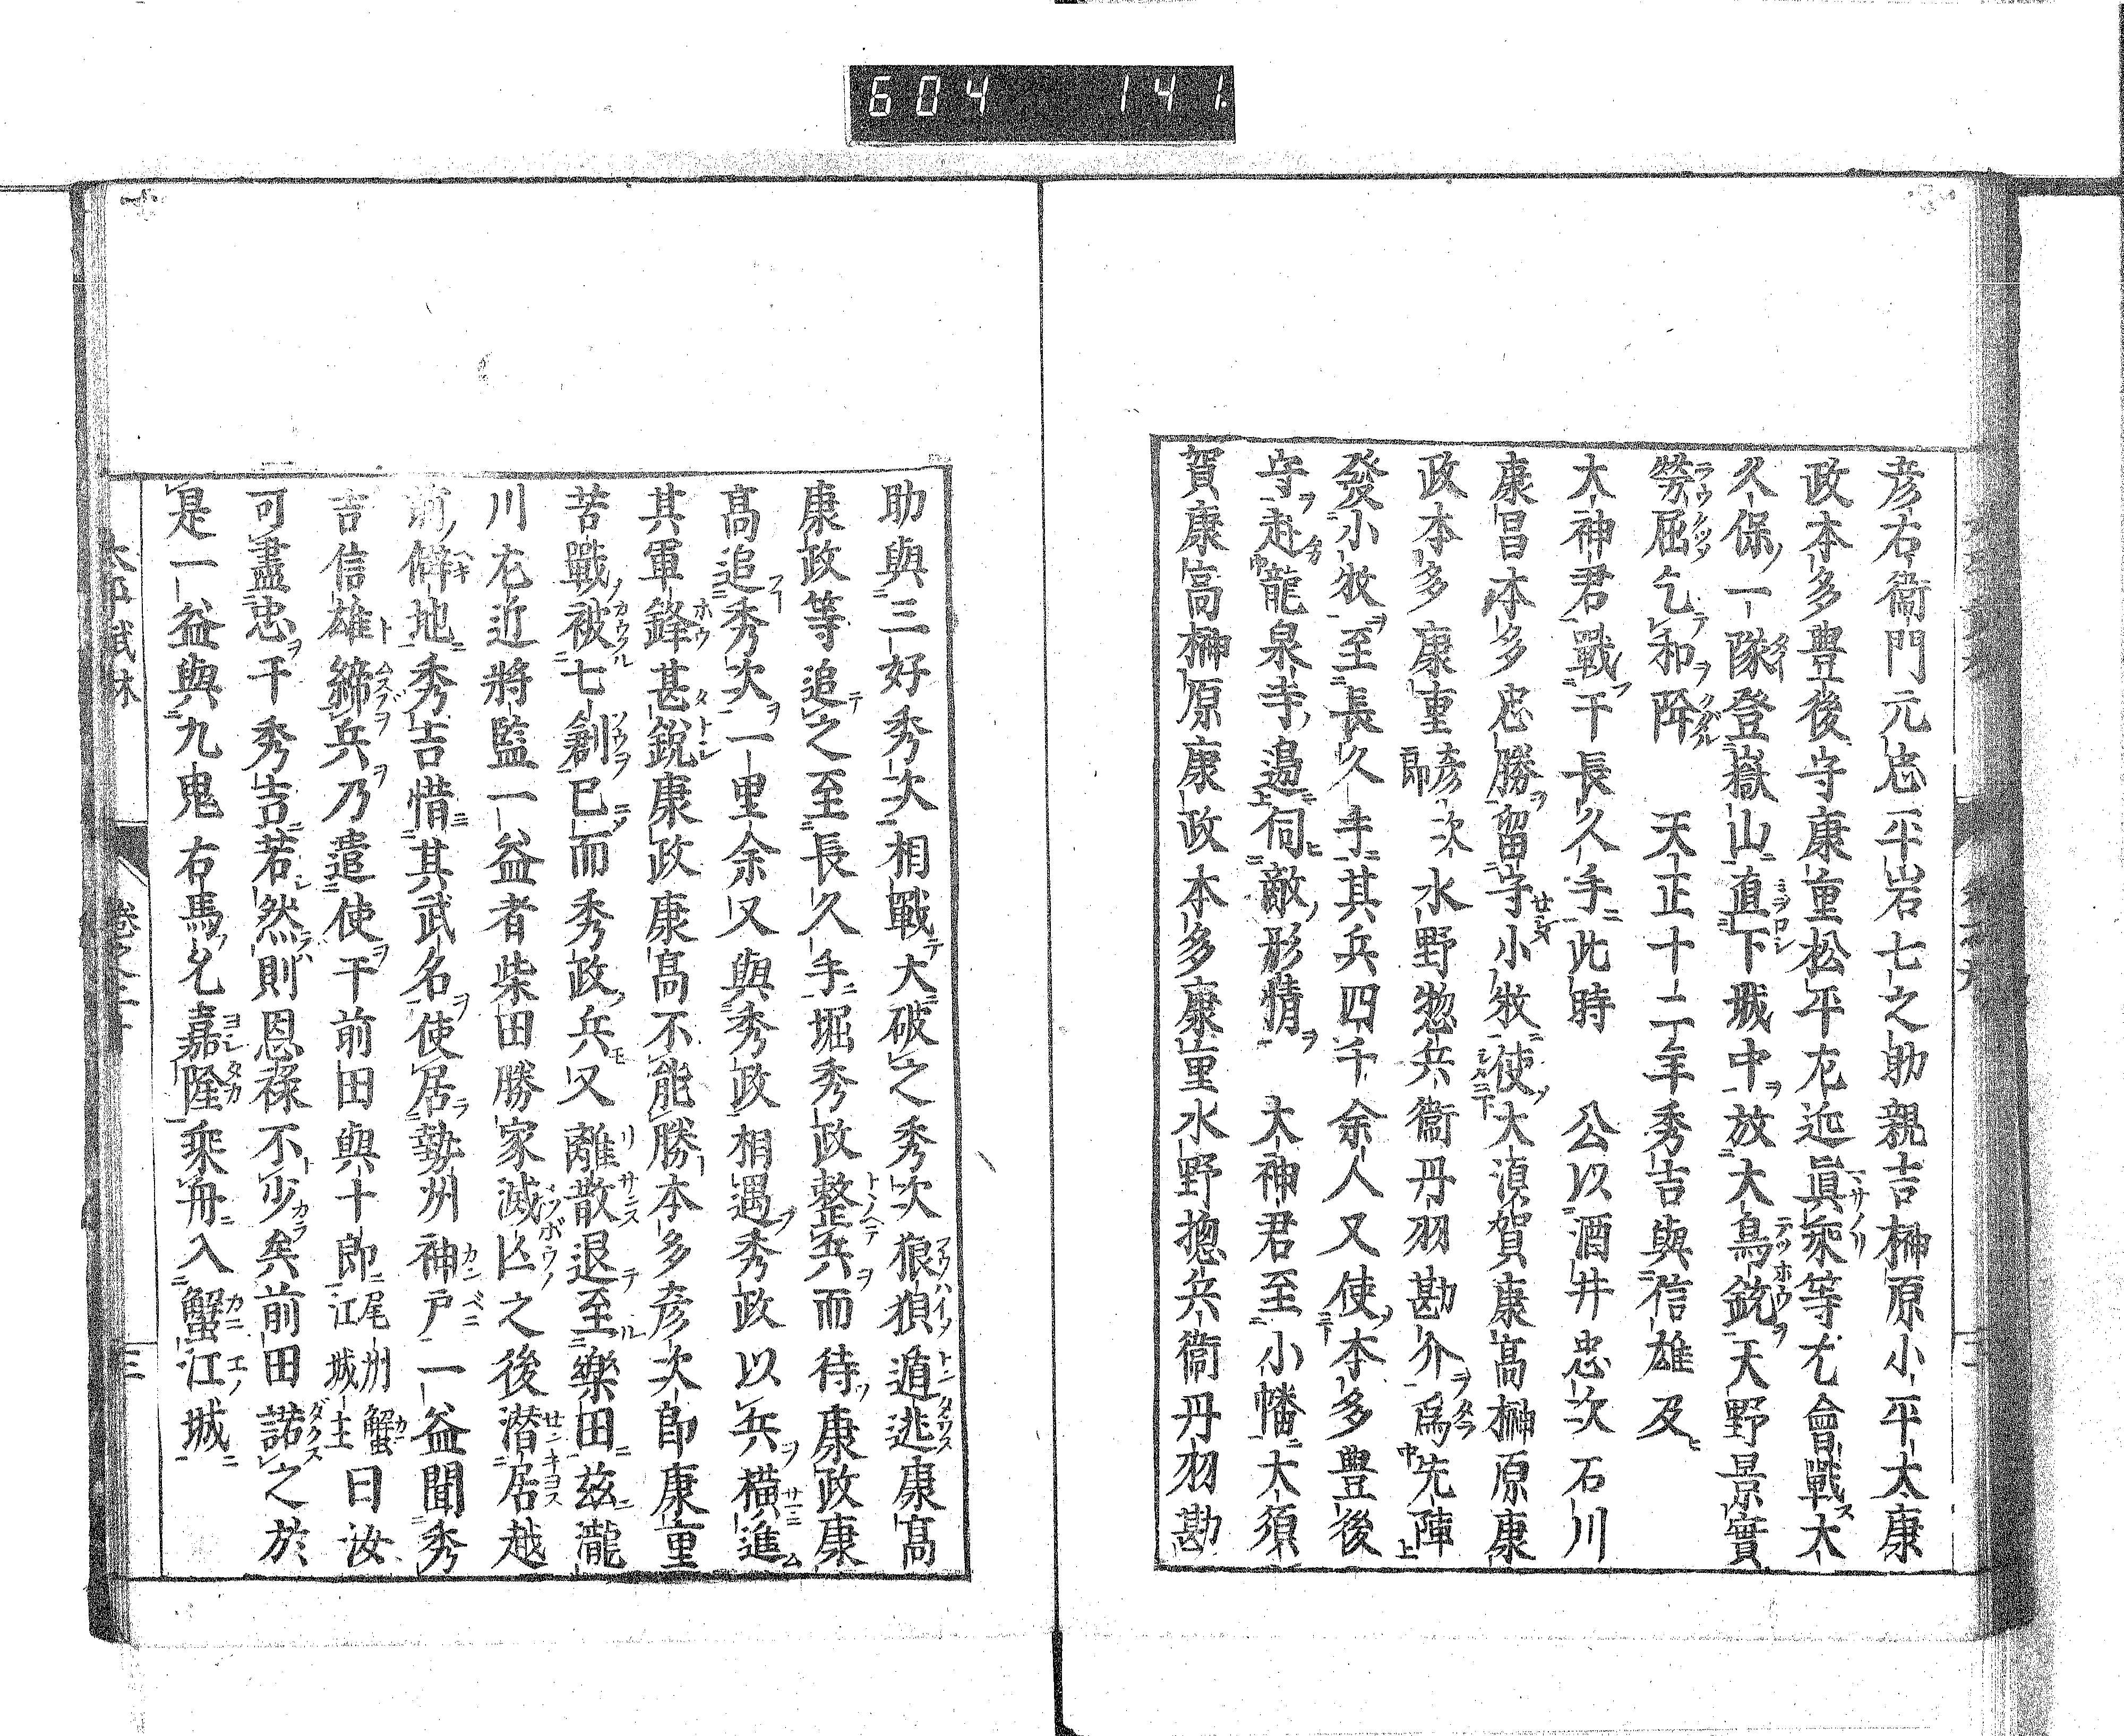 604 141
彦右衞門元忠平岩七之助親吉榊原小平太康
政本多豊後守康重松平左近眞乘等尤會戰大
久保一隊登嶽山直下城中放大鳥銃天野景實
勞屈乞和降　天正十二年秀吉與信雄及
大神君戰干長久手此時　公以酒井忠次石川
康昌本多忠勝留守小牧使大湏賀康髙榊原康
政本多康重彦次郎水野惣兵衞丹羽勘介爲先陣
發小牧至長久手其兵四千余人又使本多豊後
守赴龍泉寺邊伺敵形情　大神君至小幡大須
賀康髙榊原康政本多康重水野摠兵衞丹羽勘
助與三好秀次相戰大破之秀次狼狽遁逃康髙
康政等追之至長久手堀秀政整兵而待康政康
髙追秀次一里余又與秀政相遇秀政以兵横進
其軍鋒甚鋭康政康髙不能勝本多彦次郎康重
苦戰被七創已而秀政兵又離散退至樂田茲瀧
川左近將監一益者柴田勝家滅亡之後潜居越
前僻地秀吉惜其武名使居勢州神戸一益聞秀
吉信雄締兵乃遣使干前田與十郎尾州蟹江城主曰汝
可盡忠干秀吉若然則恩祿不少矣前田諾之於
是一益與九鬼右馬允嘉隆乘舟入蟹江城